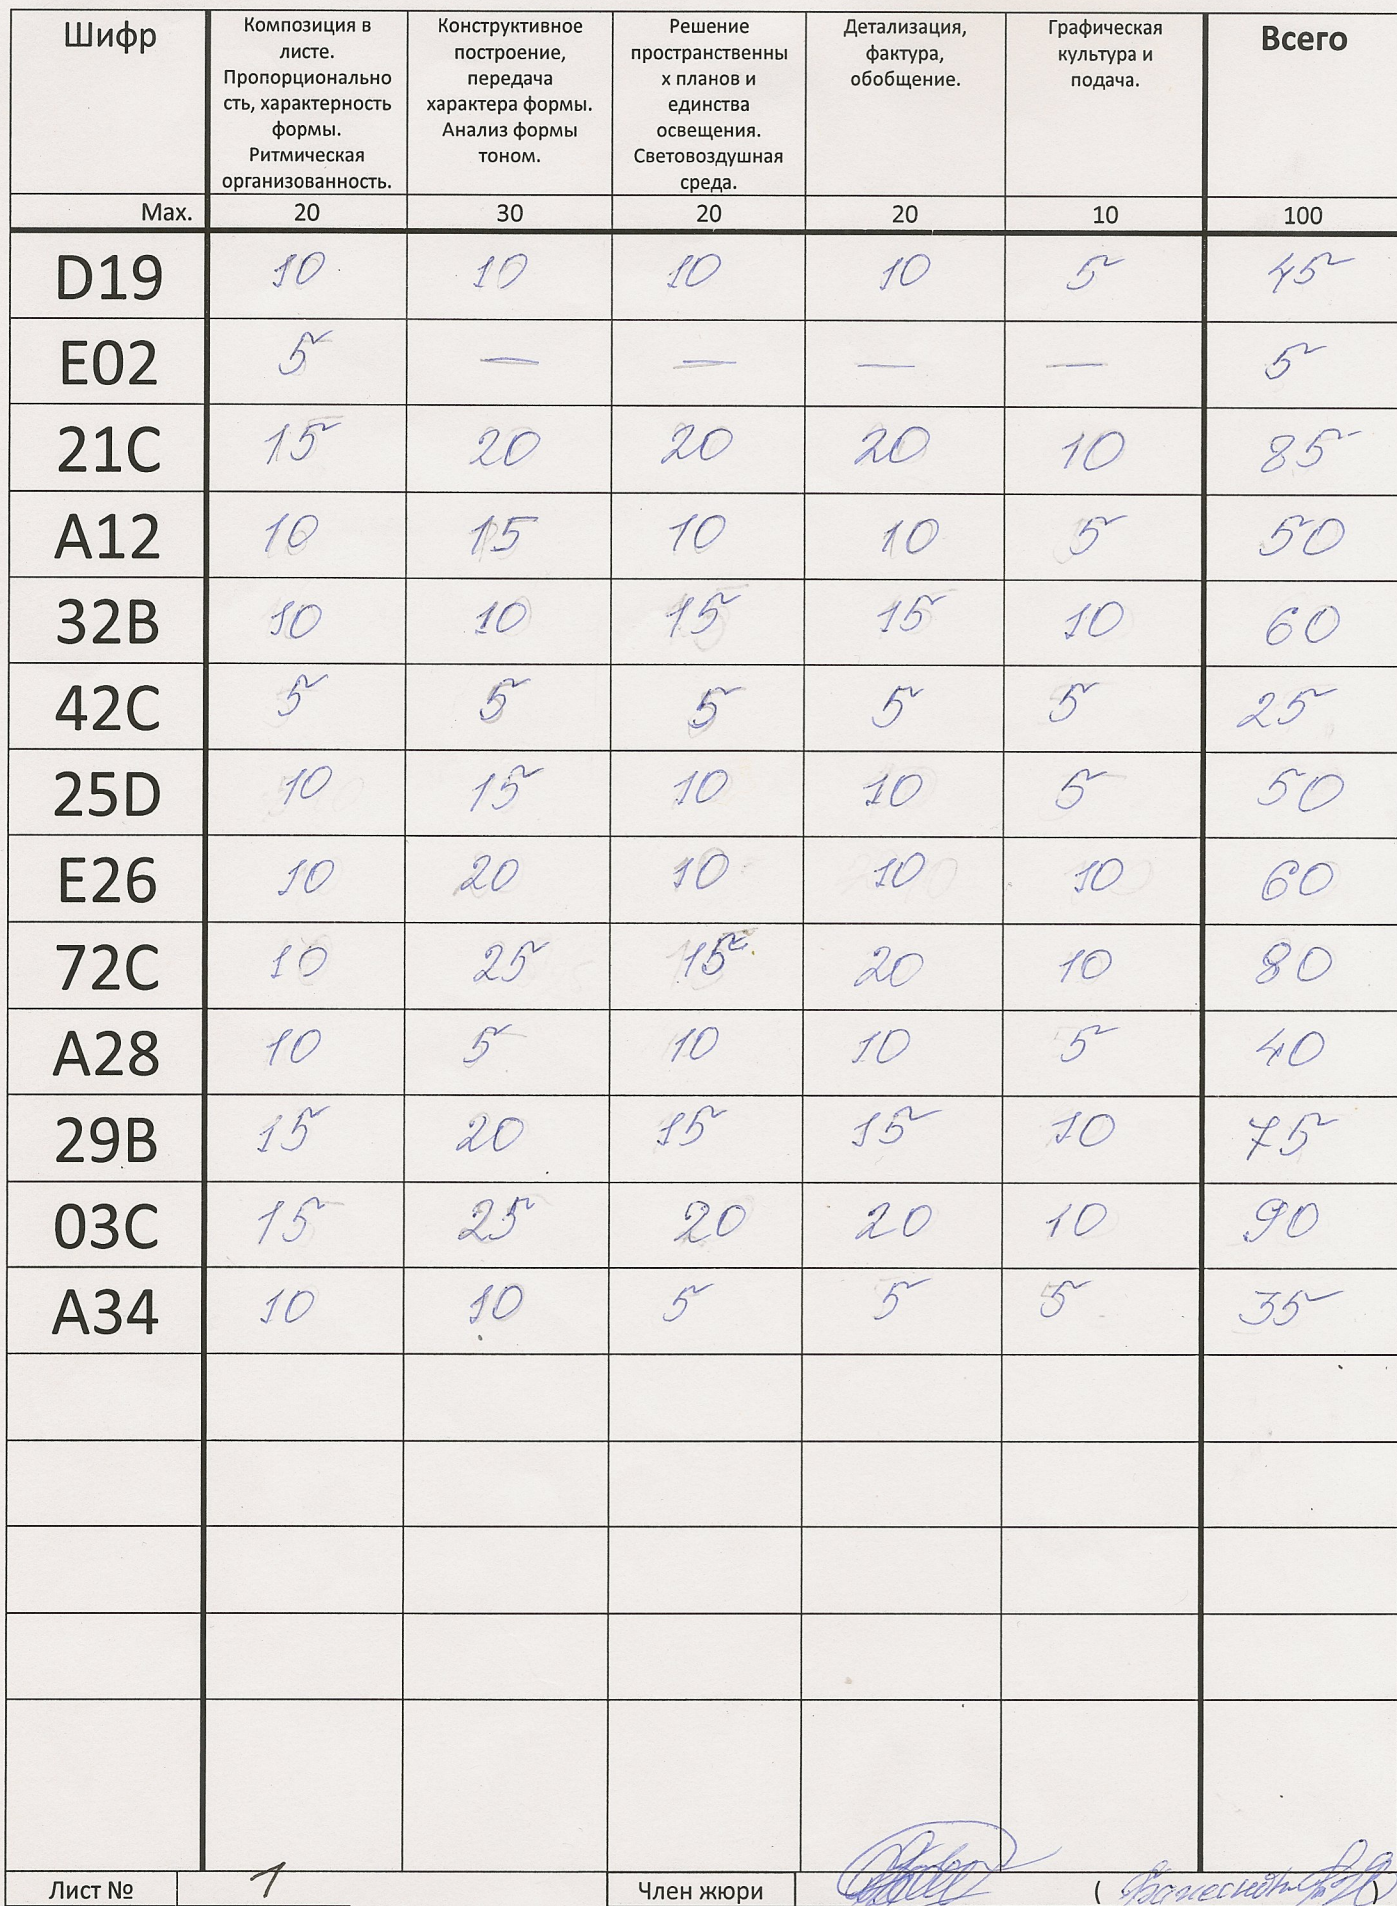 Шифр
Композиция в
листе.
Пропорционально
сть, характерность
формы.
Ритмическая
организованность.
Конструктивное
построение,
передача
характера формы.
Анализ формы
тоном.
Решение
пространственны
х планов и
единства
освещения.
Световоздушная
среда.
Детализация,
фактура,
обобщение.
Графическая
культура и
подача.
Всего
Max. 20 30 20 20 10 100
D19 10 10 10 10 5 45
E02 5 — — — — 5
21C 15 20 20 20 10 85
A12 10 15 10 10 5 50
32B 10 10 15 15 10 60
42C 5 5 5 5 5 25
25D 10 15 10 10 5 50
E26 10 20 10 10 10 60
72C 10 25 15 20 10 80
A28 10 5 10 10 5 40
29B 15 20 15 15 10 75
03C 15 25 20 20 10 90
A34 10 10 5 5 5 35
Лист № 1 Член жюри ( )